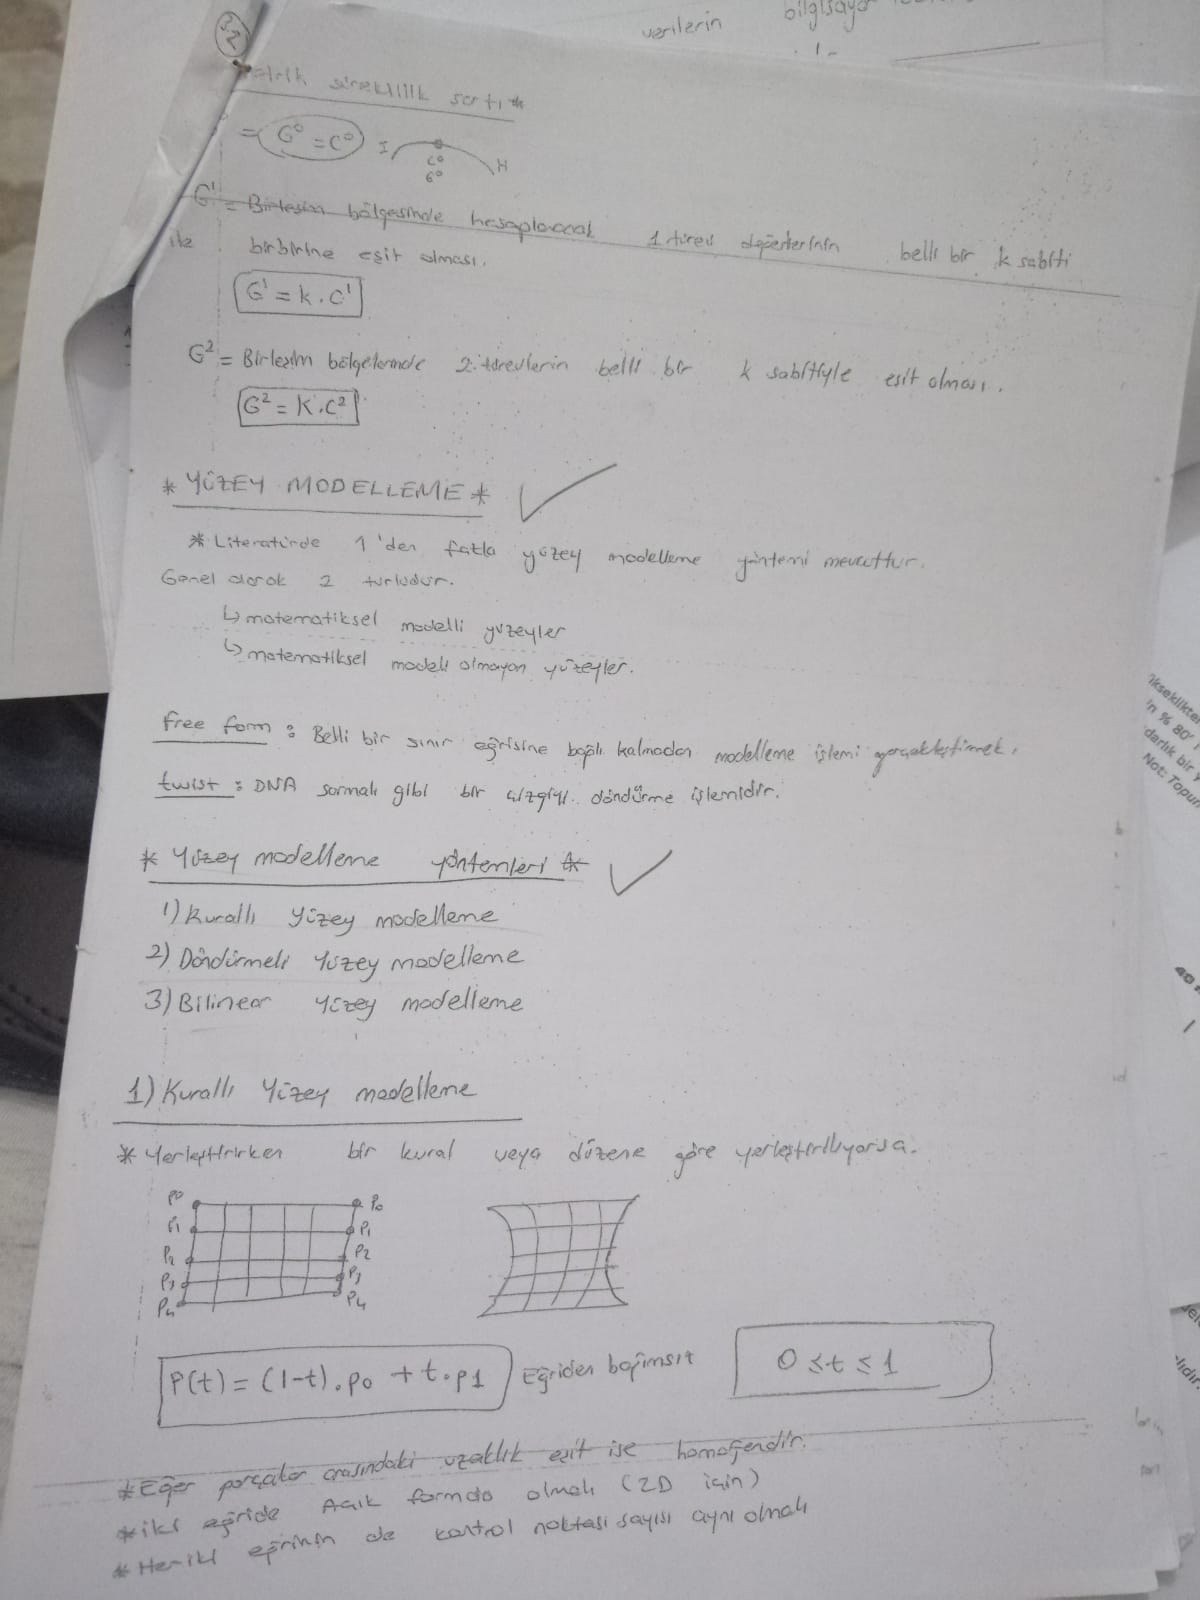 verilerin
32
süreklilik şartı *
= G⁰ = C⁰ I C⁰ G⁰ II
G¹ = Birleşim bölgesinde hesaplanacak 1 türev değerlerinin belli bir k sabiti
ile birbirine eşit olması.
G¹ = k . C¹
G² = Birleşim bölgelerinde 2. türevlerin belli bir k sabitiyle eşit olması.
G² = K . C²
* YÜZEY MODELLEME *
* Literatürde 1'den fazla yüzey modelleme yöntemi mevcuttur.
Genel olarak 2 türlüdür.
↳ matematiksel modelli yüzeyler
↳ matematiksel modeli olmayan yüzeyler.
free form : Belli bir sınır eğrisine bağlı kalmadan modelleme işlemi gerçekleştirmek.
twist : DNA sarmalı gibi bir çizgiyi döndürme işlemidir.
* Yüzey modelleme yöntemleri *
1) Kurallı Yüzey modelleme
2) Döndürmeli Yüzey modelleme
3) Bilinear Yüzey modelleme
1) Kurallı Yüzey modelleme
* Yerleştirirken bir kural veya düzene göre yerleştiriliyorsa.
P0 P0
P1 P1
P2 P2
P3 P3
P4 P4
P(t) = (1-t).p0 + t.p1 Eğriden bağımsız 0 ≤ t ≤ 1
* Eğer parçalar arasındaki uzaklık eşit ise homojendir.
* iki eğride Açık formda olmalı (2D için)
* Her iki eğrinin de kontrol noktası sayısı aynı olmalı
ükseklikte
'n % 80'
darlık bir
Not: Topun
40